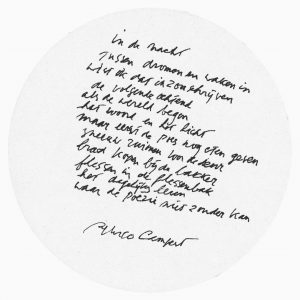 in de nacht
tussen dromen en waken in
wist ik dat ik zou schrijven
de volgende ochtend
als de wereld begon
het woord en het licht
maar eerst de poes nog eten geven
sneeuw ruimen voor de deur
brood kopen bij de bakker
flessen in de flessenbak
het dagelijks leven
waar de poëzie niet zonder kan
Remco Campert